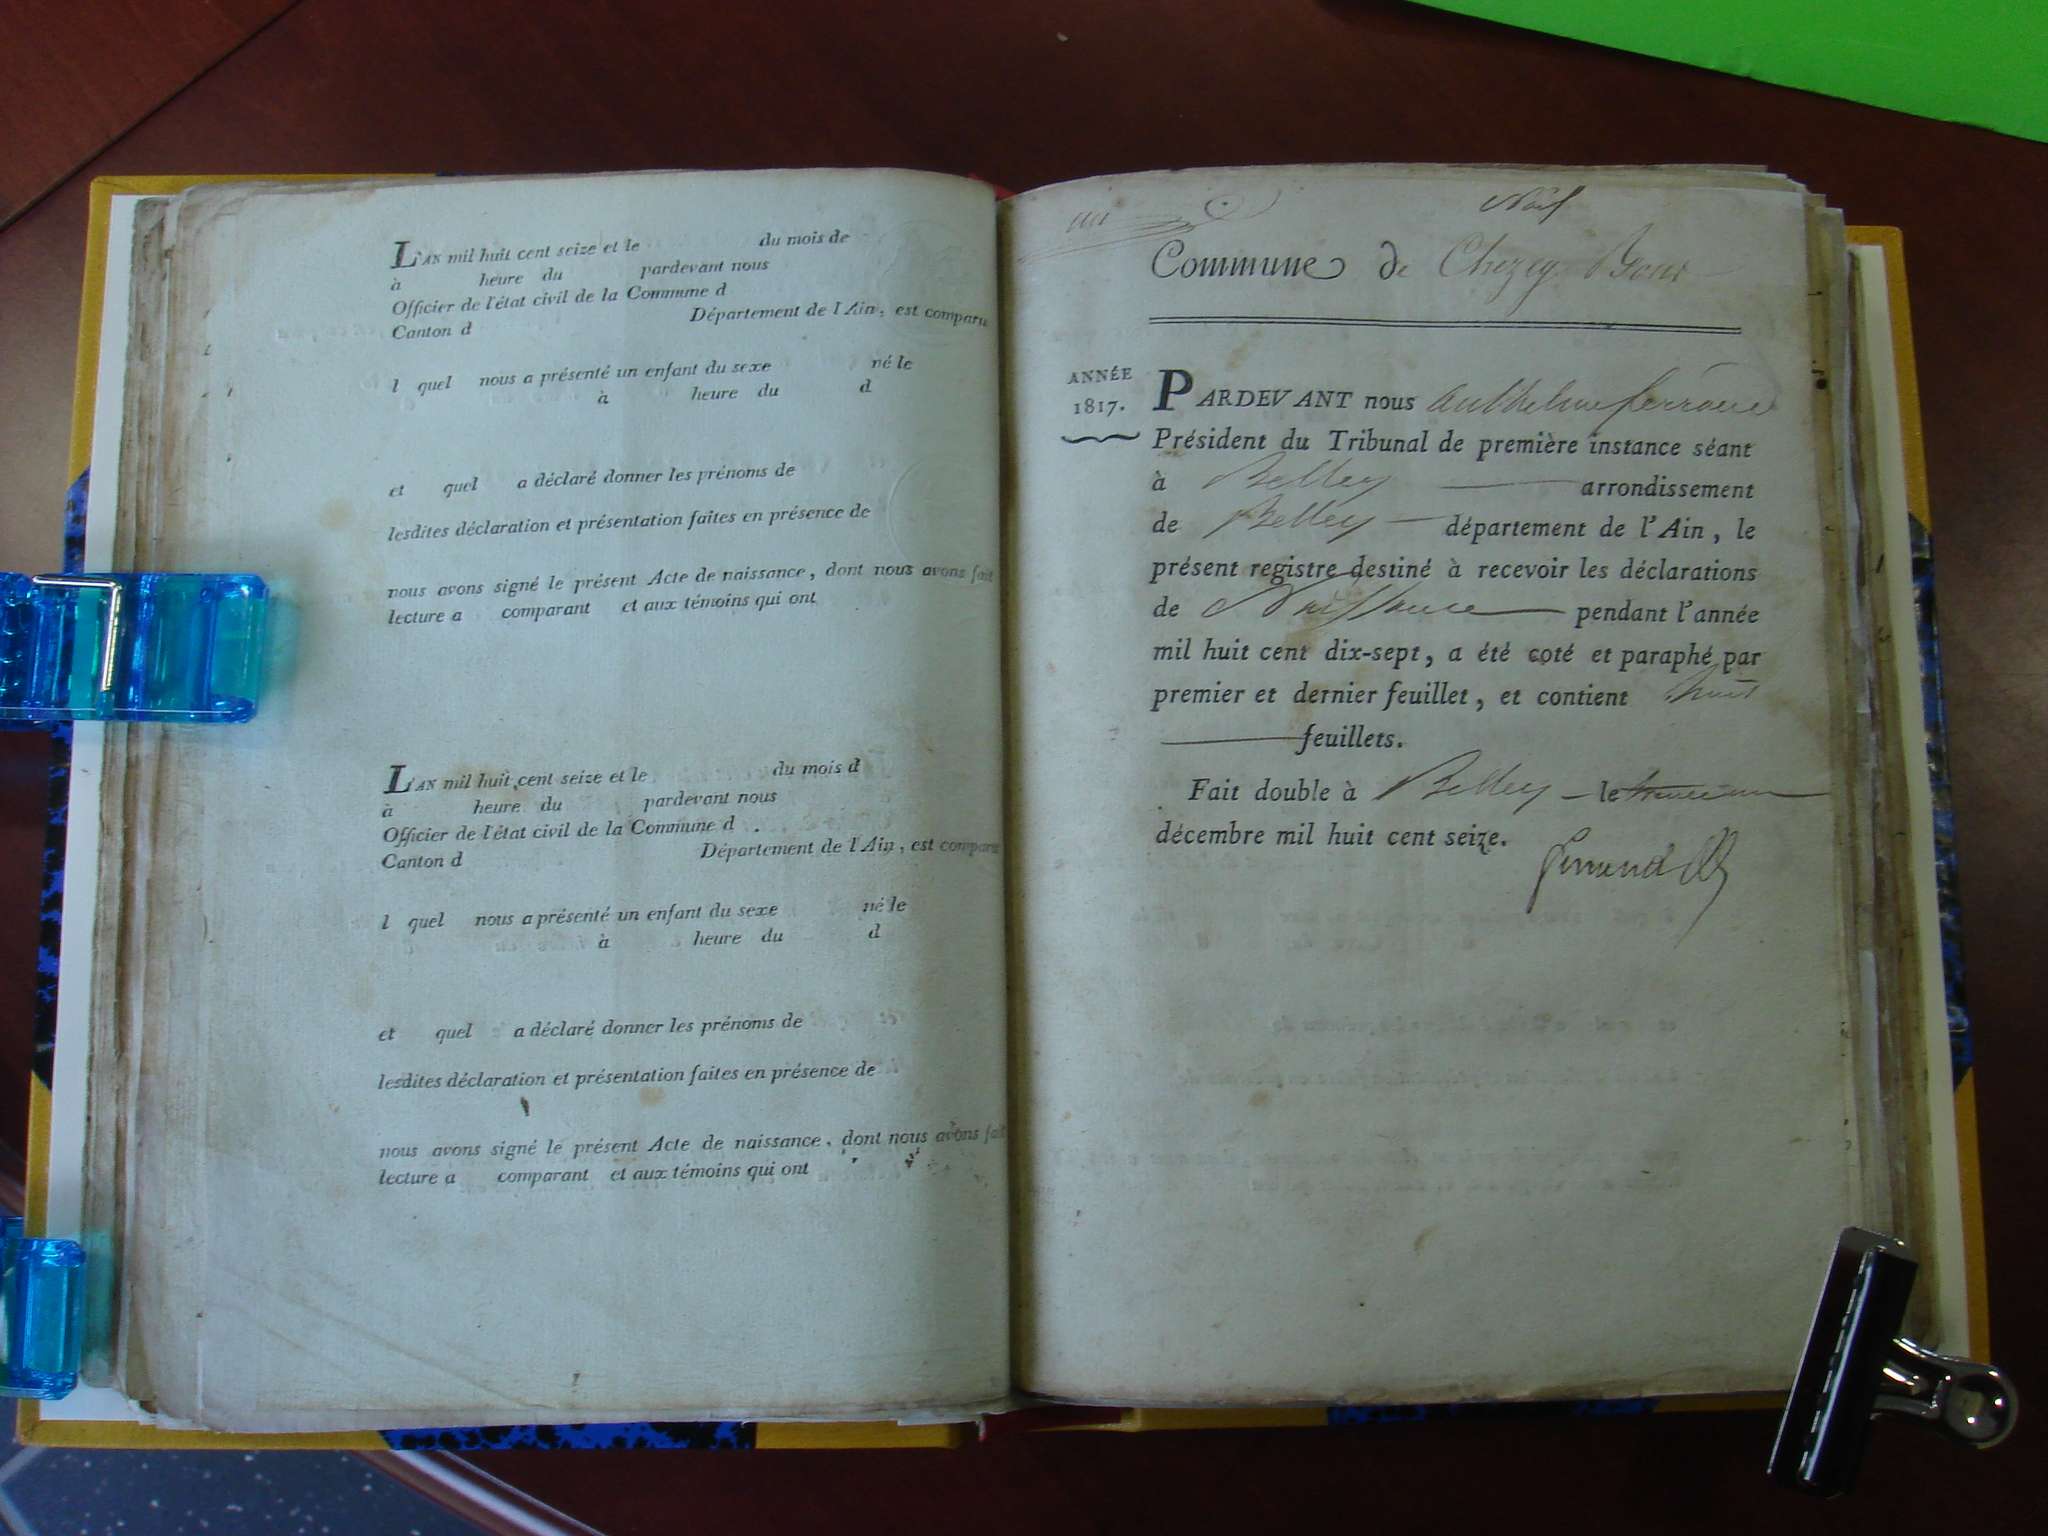 L'AN mil huit cent seize et le du mois de
à heure du pardevant nous
Officier de l'état civil de la Commune d
Canton d Département de l'Ain, est comparu
l quel nous a présenté un enfant du sexe né le
à heure du d
et quel a déclaré donner les prénoms de
lesdites déclaration et présentation faites en présence de
nous avons signé le présent Acte de naissance, dont nous avons fait
lecture a comparant et aux témoins qui ont
L'AN mil huit cent seize et le du mois d
à heure du pardevant nous
Officier de l'état civil de la Commune d
Canton d Département de l'Ain, est comparu
l quel nous a présenté un enfant du sexe né le
à heure du d
et quel a déclaré donner les prénoms de
lesdites déclaration et présentation faites en présence de
nous avons signé le présent Acte de naissance, dont nous avons fait
lecture a comparant et aux témoins qui ont
Commune de Chezey Bons
ANNÉE
1817.
PARDEVANT nous Anthelme ferrand
Président du Tribunal de première instance séant
à Belley arrondissement
de Belley département de l'Ain, le
présent registre destiné à recevoir les déclarations
de Naissance pendant l'année
mil huit cent dix-sept, a été coté et paraphé par
premier et dernier feuillet, et contient huit
feuillets.
Fait double à Belley le
décembre mil huit cent seize.